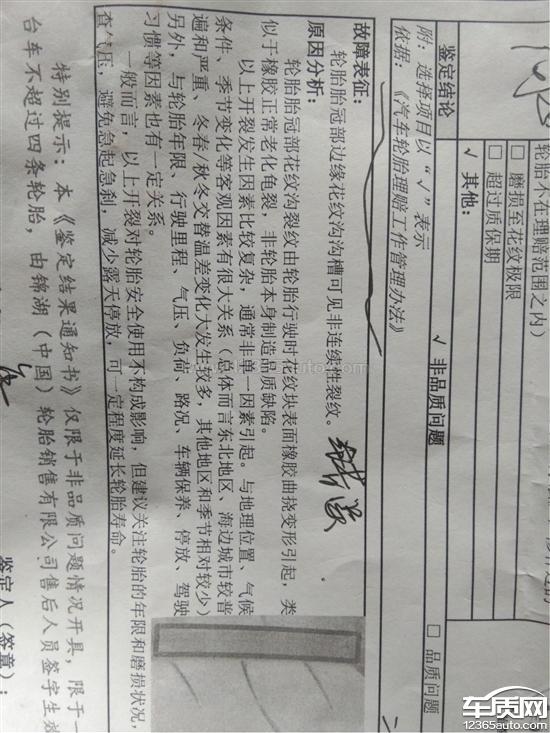 轮胎不在理赔范围之内）
□ 磨损至花纹极限
□ 超过质保期
√ 其他：
鉴定结论
√ 非品质问题
□ 品质问题
附：选择项目以“√”表示
依据：《汽车轮胎理赔工作管理办法》
故障表征：
轮胎胎冠部边缘花纹沟沟槽可见非连续性裂纹。
原因分析：
轮胎胎冠部花纹沟裂纹由轮胎行驶时花纹块表面橡胶曲挠变形引起，类
似于橡胶正常老化龟裂，非轮胎本身制造品质缺陷。
以上开裂发生因素比较复杂，通常非单一因素引起。与地理位置、气候
条件、季节变化等客观因素有很大关系（总体而言东北地区、海边城市较普
遍和严重、冬春/秋冬交替温差变化大发生较多，其他地区和季节相对较少）
另外，与轮胎年限、行驶里程、气压、负荷、路况、车辆保养、停放、驾驶
习惯等因素也有一定关系。
一般而言，以上开裂对轮胎安全使用不构成影响，但建议关注轮胎的年限和磨损状况，
查气压，避免急起急刹，减少露天停放，可一定程度延长轮胎寿命。
特别提示：本《鉴定结果通知书》仅限于非品质问题情况开具，限于一
台车不超过四条轮胎，由锦湖（中国）轮胎销售有限公司售后人员签字生
鉴定人（签章）：
车质网
12365auto.com